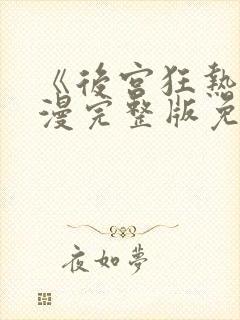 《後宮狂熱
漫完整版免
夜如夢